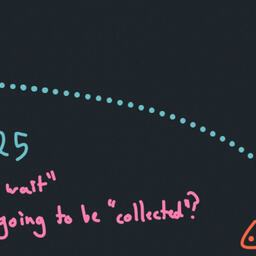 25
wait"
going to be "collected"?